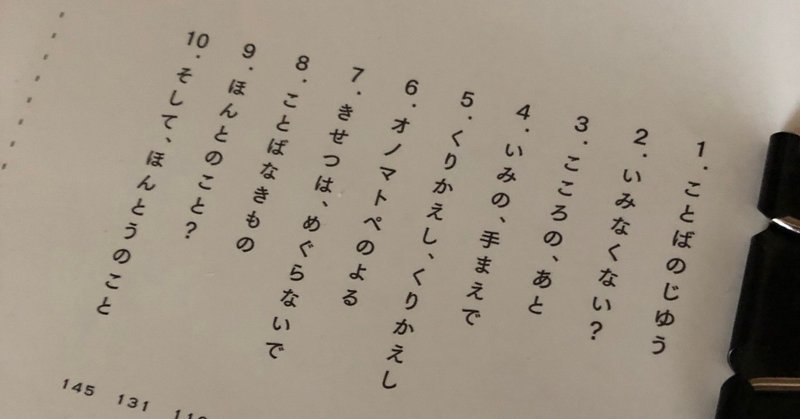 1. ことばのじゆう
2. いみなくない?
3. こころの、あと
4. いみの、手まえで
5. くりかえし、くりかえし
6. オノマトペのよる
7. きせつは、めぐらないで
8. ことばなきもの
9. ほんとのこと?
10. そして、ほんとうのこと
131
145